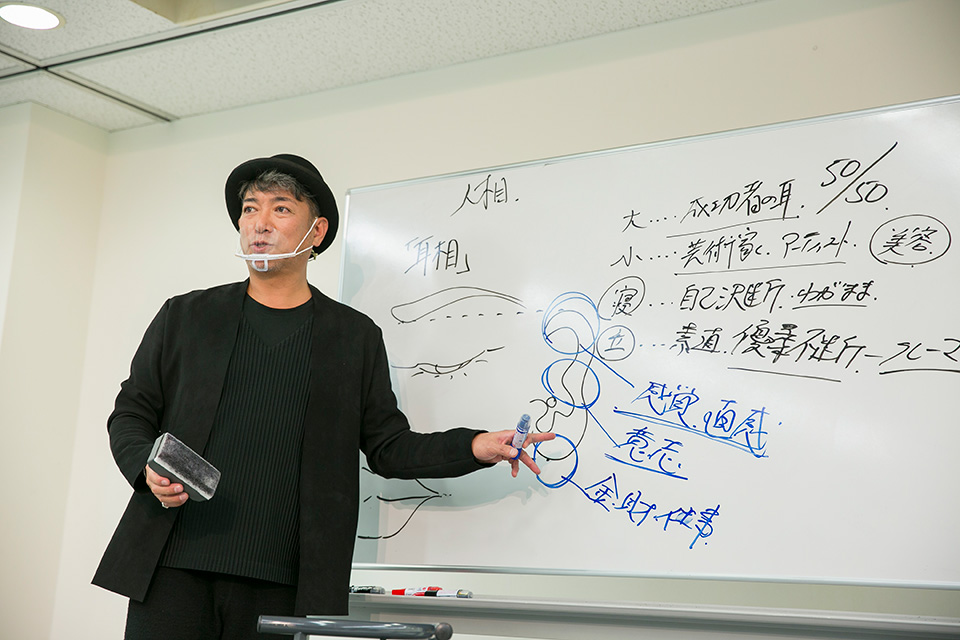 人相.
「耳相」
大....成功者の耳. 50/50.
小....美術家. アーティスト. 美容.
寝...自己決断. わがまま.
立...素直. 優柔不断
感覚. 直感.
意志.
金.財.仕事.